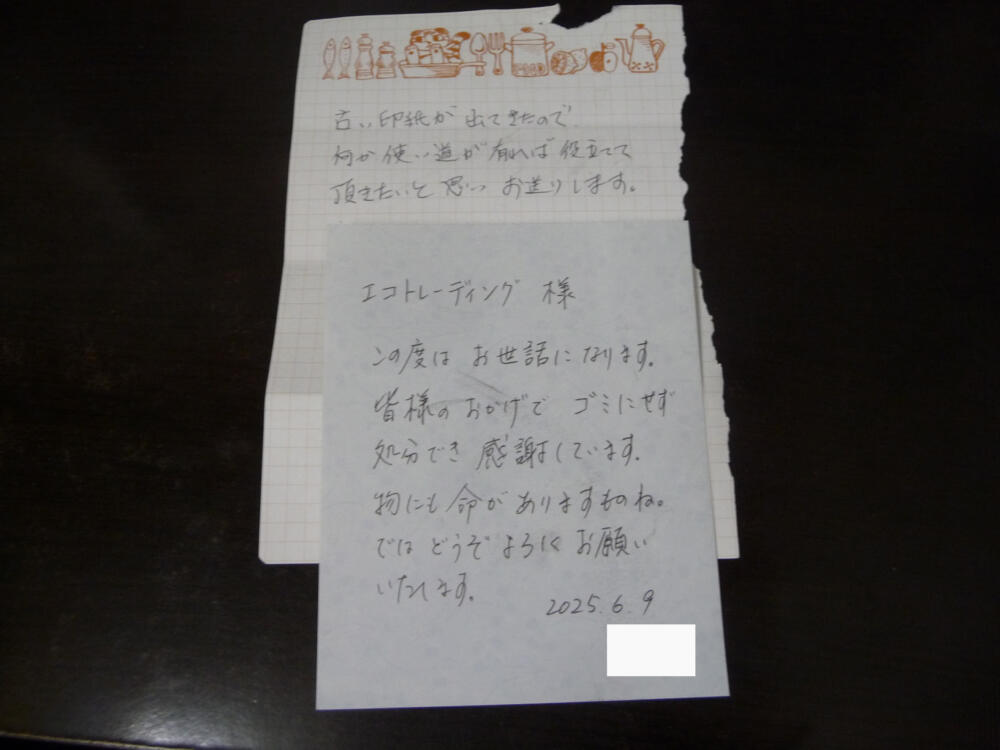 古い印紙が出てきたので
何か使い道が有れば役立てて
頂きたいと思いお送りします。
エコトレーディング 様
この度は お世話になります。
皆様のおかげで ゴミにせず
処分でき 感謝しています。
物にも命がありますものね。
では どうぞ よろしく お願い
いたします。
2025.6.9